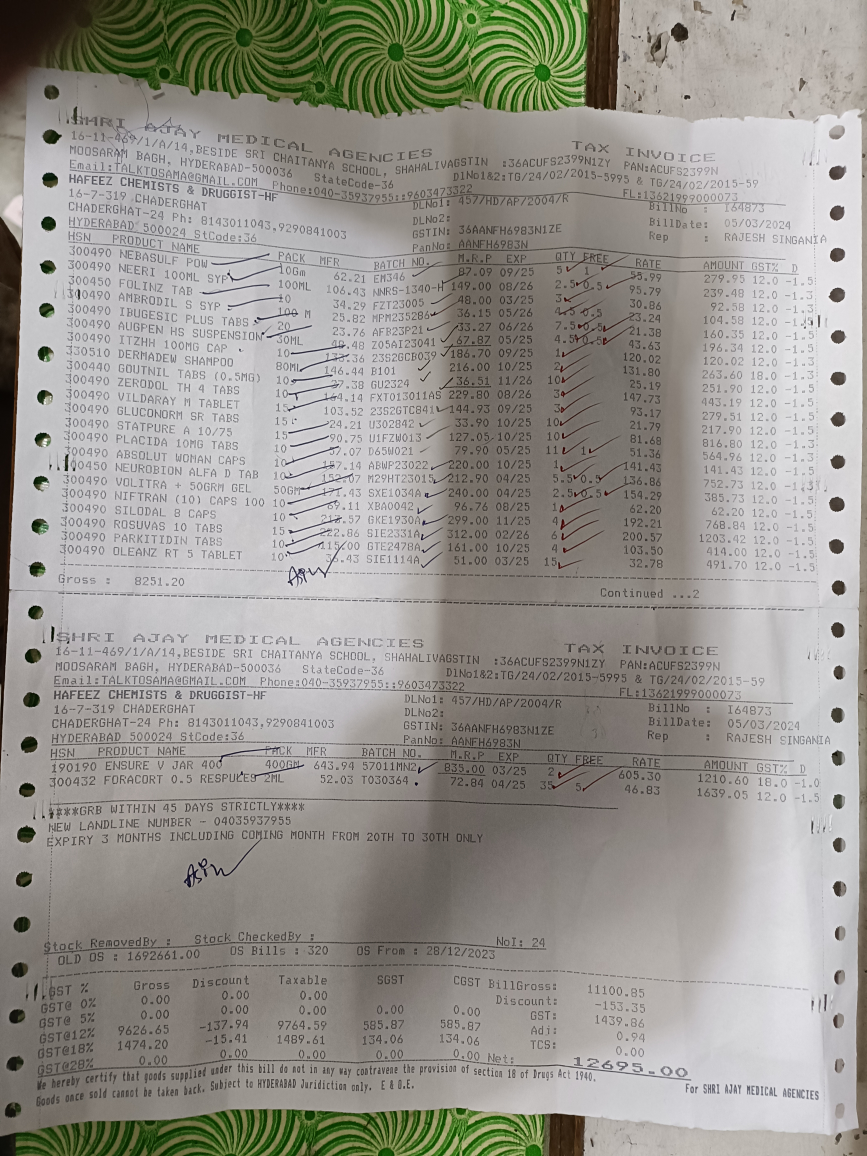 SHRI AJAY MEDICAL AGENCIES TAX INVOICE
16-11-469/1/A/14,BESIDE SRI CHAITANYA SCHOOL, SHAHALIVAGSTIN :36ACUFS2399N1ZY PAN:ACUFS2399N
MOOSARAM BAGH, HYDERABAD-500036 StateCode-36 DlNo1&2:TG/24/02/2015-5995 & TG/24/02/2015-59
Email:TALKTOSAMA@GMAIL.COM Phone:040-35937955::9603473322 FL:13621999000073
HAFEEZ CHEMISTS & DRUGGIST-HF DLNo1: 457/HD/AP/2004/R BillNo : I64873
16-7-319 CHADERGHAT DLNo2: BillDate: 05/03/2024
CHADERGHAT-24 Ph: 8143011043,9290841003 GSTIN: 36AANFH6983N1ZE Rep : RAJESH SINGANIA
HYDERABAD 500024 StCode:36 PanNo: AANFH6983N
HSN PRODUCT NAME PACK MFR BATCH NO. M.R.P EXP QTY FREE RATE AMOUNT GST% D
300490 NEBASULF POW 10Gm 62.21 EM346 87.09 09/25 5 1 55.99 279.95 12.0 -1.5
300490 NEERI 100ML SYP 100ML 106.43 NNRS-1340-H 149.00 08/26 2.5 0.5 95.79 239.48 12.0 -1.5
300450 FOLINZ TAB 10 34.29 FZT23005 48.00 03/25 3 30.86 92.58 12.0 -1.5
300490 AMBRODIL S SYP 100 M 25.82 MPM235286 36.15 05/26 4.5 0.5 23.24 104.58 12.0 -1.5
300490 IBUGESIC PLUS TABS 20 23.76 AFB23P21 33.27 06/26 7.5 0.5 21.38 160.35 12.0 -1.5
300490 AUGPEN HS SUSPENSION 30ML 48.48 Z05AI23041 67.87 05/25 4.5 0.5 43.63 196.34 12.0 -1.5
300490 ITZHH 100MG CAP 10 133.36 23S2GCB039 186.70 09/25 1 120.02 120.02 12.0 -1.5
330510 DERMADEW SHAMPOO 80ML 146.44 B101 216.00 10/25 2 131.80 263.60 18.0 -1.3
300440 GOUTNIL TABS (0.5MG) 10 27.38 GU2324 36.51 11/26 10 25.19 251.90 12.0 -1.5
300490 ZERODOL TH 4 TABS 10 164.14 FXT013011AS 229.80 08/26 3 147.73 443.19 12.0 -1.5
300490 VILDARAY M TABLET 15 103.52 23S2GTC841 144.93 09/25 3 93.17 279.51 12.0 -1.5
300490 GLUCONORM SR TABS 15 24.21 U302842 33.90 10/25 10 21.79 217.90 12.0 -1.5
300490 STATPURE A 10/75 15 90.75 U1FZW013 127.05 10/25 10 81.68 816.80 12.0 -1.3
300490 PLACIDA 10MG TABS 10 57.07 D65W021 79.90 05/25 11 1 51.36 564.96 12.0 -1.5
300490 ABSOLUT WOMAN CAPS 10 157.14 ABWP23022 220.00 10/25 1 141.43 141.43 12.0 -1.5
300450 NEUROBION ALFA D TAB 10 152.07 M29HT23015 212.90 04/25 5.5 0.5 136.86 752.73 12.0 -1.5
300490 VOLITRA + 50GRM GEL 50GM 171.43 SXE1034A 240.00 04/25 2.5 0.5 154.29 385.73 12.0 -1.5
300490 NIFTRAN (10) CAPS 100 10 69.11 XBA0042 96.76 08/25 1 62.20 62.20 12.0 -1.5
300490 SILODAL 8 CAPS 10 213.57 GKE1930A 299.00 11/25 4 192.21 768.84 12.0 -1.5
300490 ROSUVAS 10 TABS 15 222.86 SIE2331A 312.00 02/26 6 200.57 1203.42 12.0 -1.5
300490 PARKITIDIN TABS 10 115.00 GTE2478A 161.00 10/25 4 103.50 414.00 12.0 -1.5
300490 OLEANZ RT 5 TABLET 10 36.43 SIE1114A 51.00 03/25 15 32.78 491.70 12.0 -1.5
Gross : 8251.20 Continued ...2
SHRI AJAY MEDICAL AGENCIES TAX INVOICE
16-11-469/1/A/14,BESIDE SRI CHAITANYA SCHOOL, SHAHALIVAGSTIN :36ACUFS2399N1ZY PAN:ACUFS2399N
MOOSARAM BAGH, HYDERABAD-500036 StateCode-36 DlNo1&2:TG/24/02/2015-5995 & TG/24/02/2015-59
Email:TALKTOSAMA@GMAIL.COM Phone:040-35937955::9603473322 FL:13621999000073
HAFEEZ CHEMISTS & DRUGGIST-HF DLNo1: 457/HD/AP/2004/R BillNo : I64873
16-7-319 CHADERGHAT DLNo2: BillDate: 05/03/2024
CHADERGHAT-24 Ph: 8143011043,9290841003 GSTIN: 36AANFH6983N1ZE Rep : RAJESH SINGANIA
HYDERABAD 500024 StCode:36 PanNo: AANFH6983N
HSN PRODUCT NAME PACK MFR BATCH NO. M.R.P EXP QTY FREE RATE AMOUNT GST% D
190190 ENSURE V JAR 400 400GM 643.94 57011MN2 835.00 03/25 2 605.30 1210.60 18.0 -1.0
300432 FORACORT 0.5 RESPULES 2ML 52.03 T030364 72.84 04/25 35 5 46.83 1639.05 12.0 -1.5
****GRB WITHIN 45 DAYS STRICTLY****
NEW LANDLINE NUMBER - 04035937955
EXPIRY 3 MONTHS INCLUDING COMING MONTH FROM 20TH TO 30TH ONLY
Stock RemovedBy : Stock CheckedBy : NoI: 24
OLD OS : 1692661.00 OS Bills : 320 OS From : 28/12/2023
GST % Gross Discount Taxable SGST CGST BillGross: 11100.85
GST@ 0% 0.00 0.00 0.00 Discount: -153.35
GST@ 5% 0.00 0.00 0.00 0.00 0.00 GST: 1439.86
GST@12% 9626.65 -137.94 9764.59 585.87 585.87 Adj: 0.94
GST@18% 1474.20 -15.41 1489.61 134.06 134.06 TCS: 0.00
GST@28% 0.00 0.00 0.00 0.00 0.00 Net: 12695.00
We hereby certify that goods supplied under this bill do not in any way contravene the provision of section 18 of Drugs Act 1940.
Goods once sold cannot be taken back. Subject to HYDERABAD Juridiction only. E & O.E. For SHRI AJAY MEDICAL AGENCIES